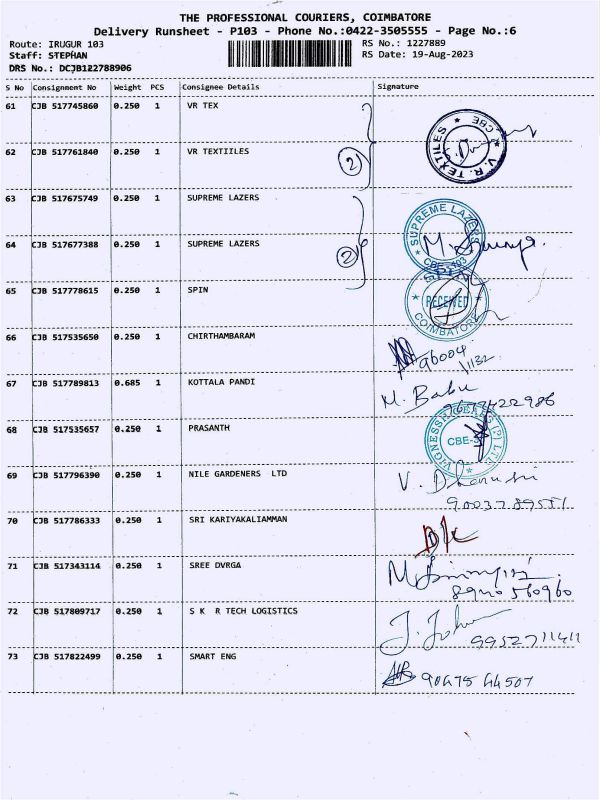 THE PROFESSIONAL COURIERS, COIMBATORE
Delivery Runsheet - P103 - Phone No.:0422-3505555 - Page No.:6
Route: IRUGUR 103 RS No.: 1227889
Staff: STEPHAN RS Date: 19-Aug-2023
DRS No.: DCJB122788906
S No Consignment No Weight PCS Consignee Details Signature
61 CJB 517745860 0.250 1 VR TEX
62 CJB 517761840 0.250 1 VR TEXTIILES 2 V.R. TEXTILES CBE
63 CJB 517675749 0.250 1 SUPREME LAZERS
64 CJB 517677388 0.250 1 SUPREME LAZERS 2 SUPREME LAZERS CBE-103
65 CJB 517778615 0.250 1 SPIN RECEIVED COIMBATORE
66 CJB 517535650 0.250 1 CHIRTHAMBARAM
67 CJB 517789813 0.685 1 KOTTALA PANDI M. Babu
68 CJB 517535657 0.250 1 PRASANTH CBE-
69 CJB 517796390 0.250 1 NILE GARDENERS LTD V.
70 CJB 517786333 0.250 1 SRI KARIYAKALIAMMAN
71 CJB 517343114 0.250 1 SREE DVRGA
72 CJB 517809717 0.250 1 S K R TECH LOGISTICS J. John 9952711411
73 CJB 517822499 0.250 1 SMART ENG 90475 44507